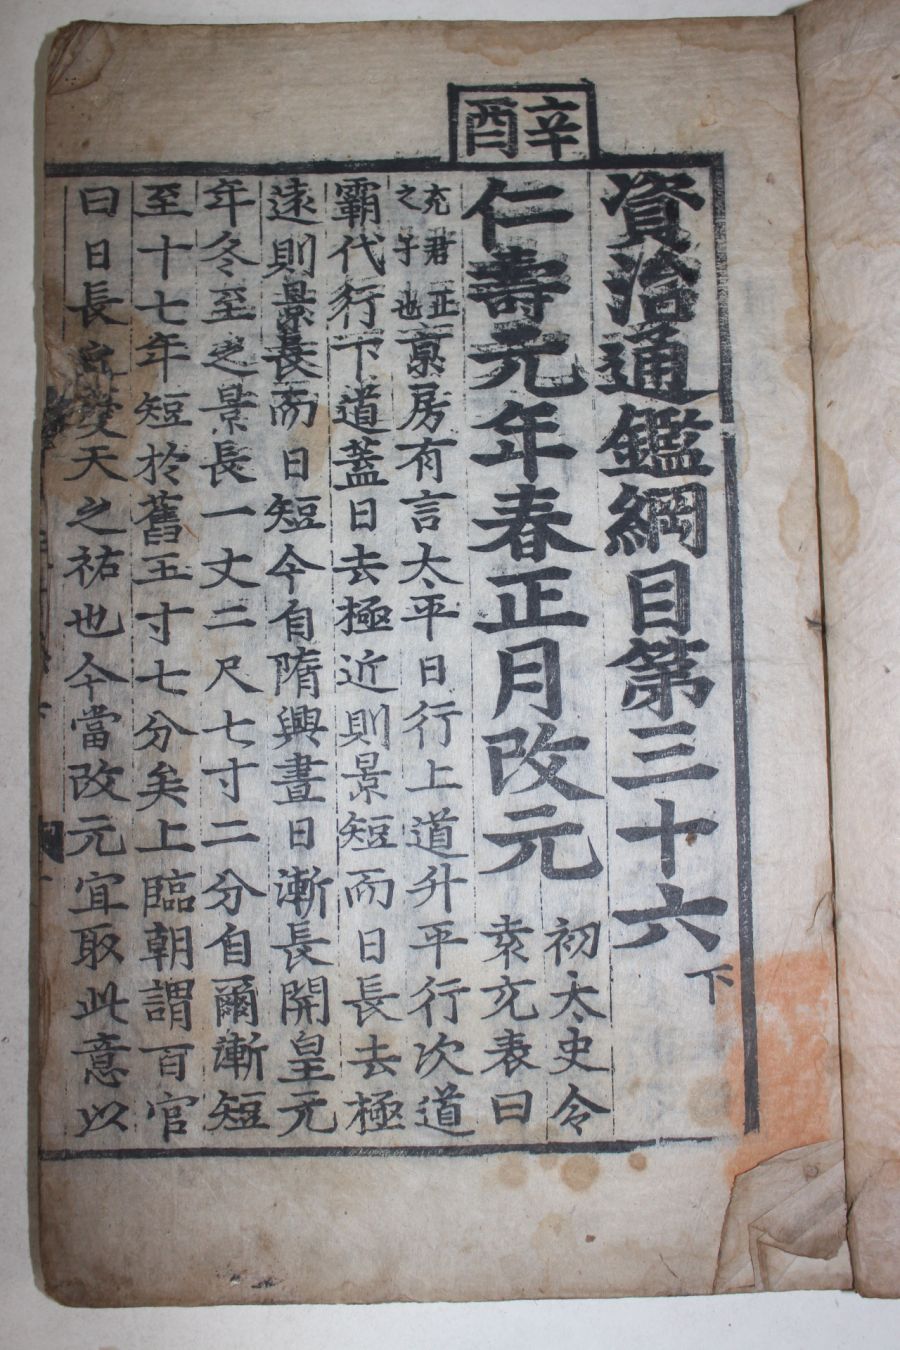 辛酉
資治通鑑綱目第三十六
下
仁壽元年春正月改元
初太史令
袁充表曰
充君正
之子也
京房有言太平日行上道升平行次道
霸代行下道蓋日去極近則景短而日長去極
遠則景長而日短今自隋興晝日漸長開皇元
年冬至之景長一丈二尺七寸二分自爾漸短
至十七年短於舊五寸七分矣上臨朝謂百官
曰日長之慶天之祐也今當改元宜取此意以